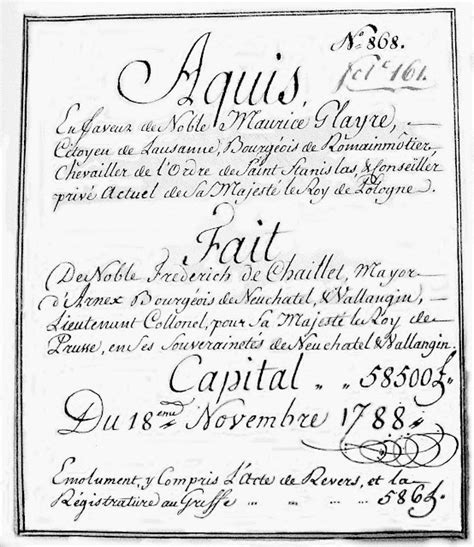 N.º 868.
fol.º 161.
Aquis,
En faveur de Noble Maurice Glayre,
Citoyen de Lausanne, Bourgeois de Romainmôtier,
Chevailler de l'Ordre de Saint Stanislas, & Conseiller
privé Actuel de Sa Majesté le Roy de Pologne.
Fait
De Noble Frederich de Chaillet, Mayor
d'Arnex Bourgeois de Neuchatel, & Vallangin,
Lieutenant Collonel, pour Sa Majesté le Roy de
Prusse, en Ses Souverainetés de Neuchatel & Vallangin.
Capital „ „ 58500 £
Du 18eme Novembre 1788
Emolument, y Compris L'Acte de Revers, et la
Régistrature au Greffe „ „ „ 586 £.